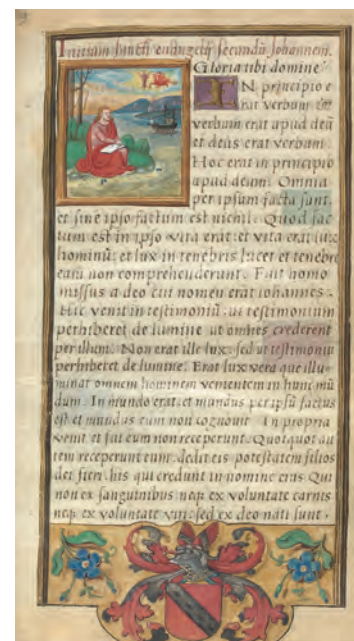 Initium sancti euangelij secundū Johannem.
Gloria tibi domine
IN principio e
rat verbum et
verbum erat apud deū
et deus erat verbum.
Hoc erat in principio
apud deum. Omnia
per ipsum facta sunt.
et sine ipso factum est nichil. Quod fac
tum est in ipso vita erat: et vita erat lux
hominū: et lux in tenebris lucet et tenebre
eam non comprehenderunt. Fuit homo
missus a deo cui nomen erat iohannes.
Hic venit in testimoniū. ut testimonium
perhiberet de lumine ut omnes crederent
per illum. Non erat ille lux. sed ut testimoniū
perhiberet de lumine. Erat lux vera que illu
minat omnem hominem venientem in hunc mū
dum. In mundo erat. et mundus per ipsū factus
est et mundus eum non cognouit. In propria
venit et sui eum non receperunt. Quotquot au
tem receperunt eum. dedit eis potestatem filios
dei fieri. his qui credunt in nomine eius. Qui
non ex sanguinibus neqȝ ex voluntate carnis
neqȝ ex voluntate viri: sed ex deo nati sunt.